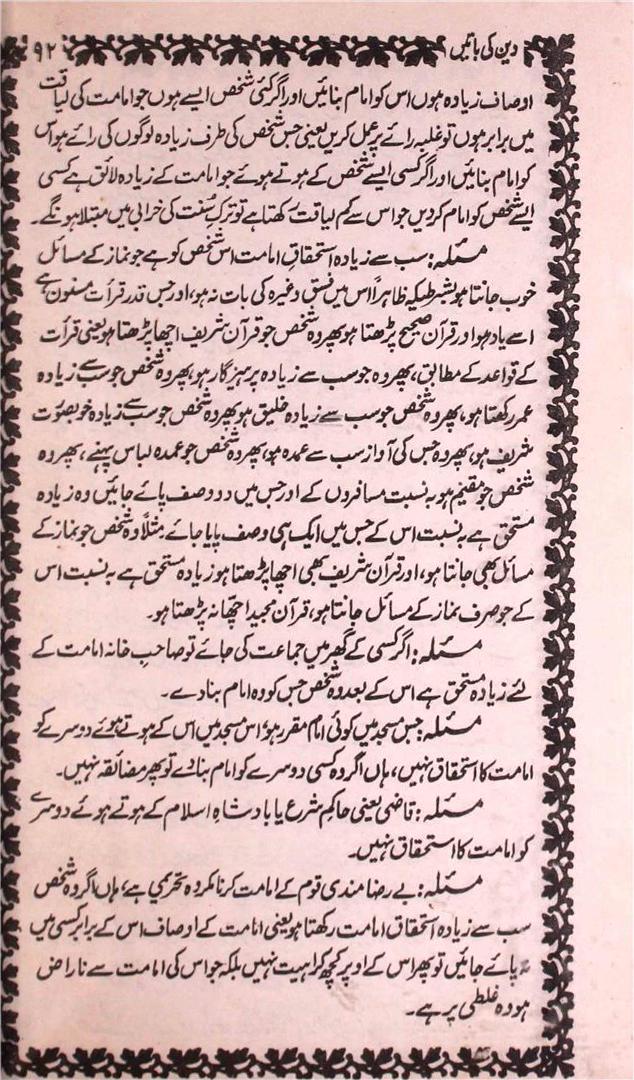 دین کی باتیں ۹۲
اوصاف زیادہ ہوں اس کو امام بنائیں اور اگر کئی شخص ایسے ہوں جو امامت کی لیاقت
میں برابر ہوں تو غلبہ رائے پر عمل کریں یعنی جس شخص کی طرف زیادہ لوگوں کی رائے ہو اس
کو امام بنائیں اور اگر کسی ایسے شخص کے ہوتے ہوئے جو امامت کے زیادہ لائق ہے کسی
ایسے شخص کو امام کر دیں جو اس سے کم لیاقت رکھتا ہے تو ترک سنت کی خرابی میں مبتلا ہونگے۔
مسئلہ: سب سے زیادہ استحقاق امامت اس شخص کو ہے جو نماز کے مسائل
خوب جانتا ہو بشرطیکہ ظاہراً اس میں فسق وغیرہ کی بات نہ ہو، اور جس قدر قرأت مسنون ہے
اسے یاد ہو اور قرآن صحیح پڑھتا ہو پھر وہ شخص جو قرآن شریف اچھا پڑھتا ہو یعنی قرأت
کے قواعد کے مطابق، پھر وہ جو سب سے زیادہ پرہیزگار ہو، پھر وہ شخص جو سب سے زیادہ
عمر رکھتا ہو، پھر وہ شخص جو سب سے زیادہ خلیق ہو پھر وہ شخص جو سب سے زیادہ خوبصورت
شریف ہو، پھر وہ جس کی آواز سب سے عمدہ ہو، پھر وہ شخص جو عمدہ لباس پہنے، پھر وہ
شخص جو مقیم ہو بہ نسبت مسافروں کے اور جس میں دو وصف پائے جائیں وہ زیادہ
مستحق ہے بہ نسبت اس کے جس میں ایک ہی وصف پایا جائے مثلاً وہ شخص جو نماز کے
مسائل بھی جانتا ہو، اور قرآن شریف بھی اچھا پڑھتا ہو زیادہ مستحق ہے بہ نسبت اس
کے جو صرف نماز کے مسائل جانتا ہو، قرآن مجید اچھا نہ پڑھتا ہو۔
مسئلہ: اگر کسی کے گھر میں جماعت کی جائے تو صاحب خانہ امامت کے
لئے زیادہ مستحق ہے اس کے بعد وہ شخص جس کو وہ امام بنا دے۔
مسئلہ: جس مسجد میں کوئی امام مقرر ہو، اس مسجد میں اس کے ہوتے ہوئے دوسرے کو
امامت کا استحقاق نہیں، ہاں اگر وہ کسی دوسرے کو امام بنا دے تو پھر مضائقہ نہیں۔
مسئلہ: قاضی یعنی حاکم شرع یا بادشاہ اسلام کے ہوتے ہوئے دوسرے
کو امامت کا استحقاق نہیں۔
مسئلہ: بے رضامندی قوم کے امامت کرنا مکروہ تحریمی ہے، ہاں اگر وہ شخص
سب سے زیادہ استحقاق امامت رکھتا ہو یعنی امامت کے اوصاف اس کے برابر کسی میں
نہ پائے جائیں تو پھر اس کے اوپر کچھ کراہیت نہیں بلکہ جو اس کی امامت سے ناراض
ہو وہ غلطی پر ہے۔